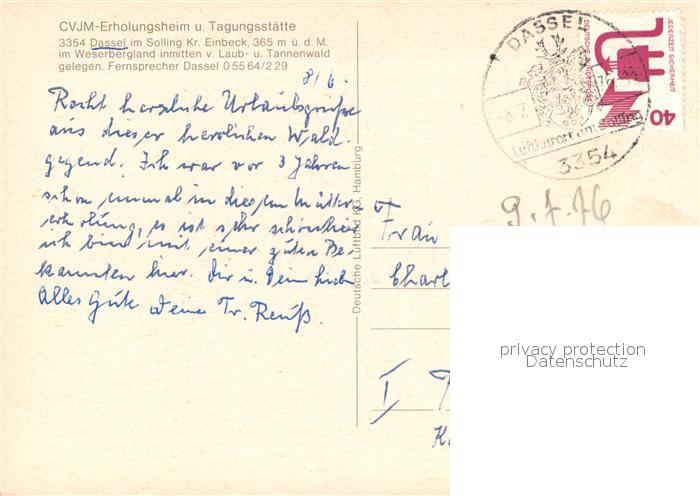 CVJM-Erholungsheim u. Tagungsstätte
3354 Dassel im Solling Kr. Einbeck, 365 m ü. d. M.
im Weserbergland inmitten v. Laub- u. Tannenwald
gelegen. Fernsprecher Dassel 0 55 64/2 29
8/6.
Recht herzliche Urlaubsgrüße
aus dieser herrlichen Wald-
gegend. Ich war vor 3 Jahren
schon einmal in diesem Mütter-
erholung, es ist sehr schön hier
ich bin mit einer guten Be-
kannten hier. Dir u. Deinen
Alles Gute Deine Tr. Reuß.
Deutsche Luftbild KG. Hamburg
DASSEL
Luftkurort am Solling
3354
JEDERZEIT SICHERHEIT
DEUTSCHE BUNDESPOST
40
9.7.76
Frau
Charl
I
privacy protection
Datenschutz